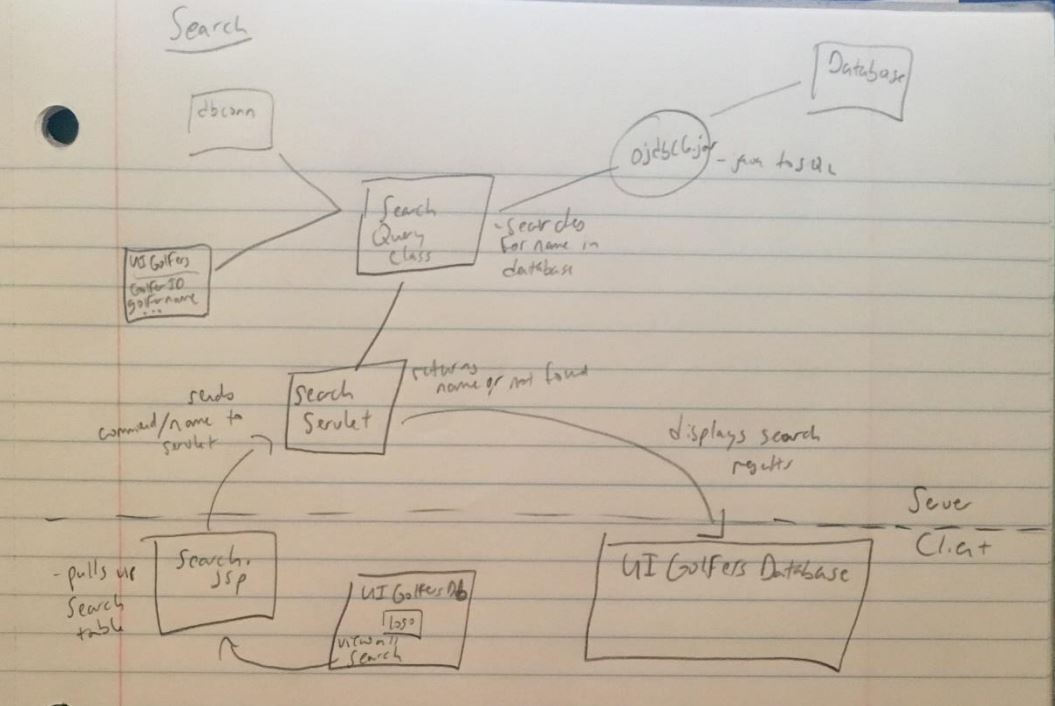 Search
Database
dbconn
Ojdbc6.jar
- java to SQL
Search
Query
Class
- searches
for name in
database
UI Golfers
GolferID
golfername
...
returns
name or not found
Search
Servlet
sends
command/name to
servlet
displays search
results
Sever
Client
Search.
jsp
- pulls up
Search
table
UI GolfersDb
logo
view all
search
UI Golfers Database